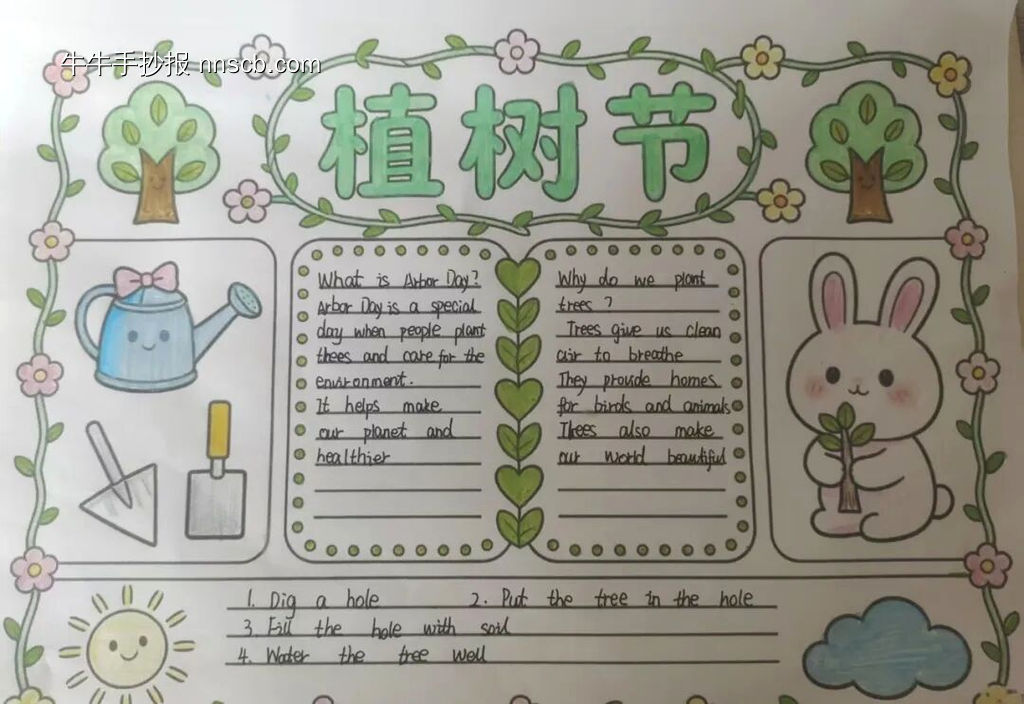 牛牛手抄报 nnscb.com
植树节
What is Arbor Day?
Arbor Day is a special
day when people plant
thees and care for the
environment.
It helps make
our planet and
healthier
Why do we plant
trees ?
Trees give us clean
air to breathe
They provide homes
for birds and animals
Thees also make
our world beautiful
1. Dig a hole 2. Put the tree in the hole
3. Fill the hole with soil
4. Water the tree well